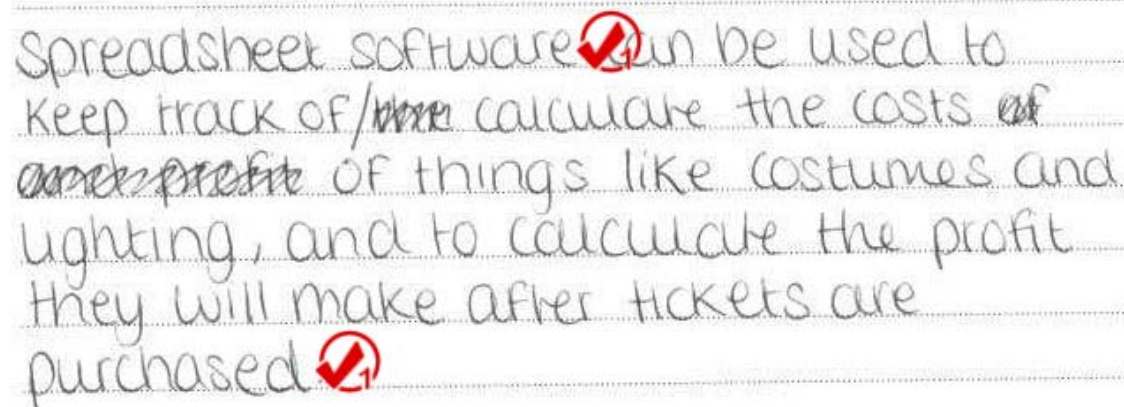 Spreadsheet software can be used to
Keep track of/ calculate the costs
of things like costumes and
lighting, and to calculate the profit
they will make after tickets are
purchased